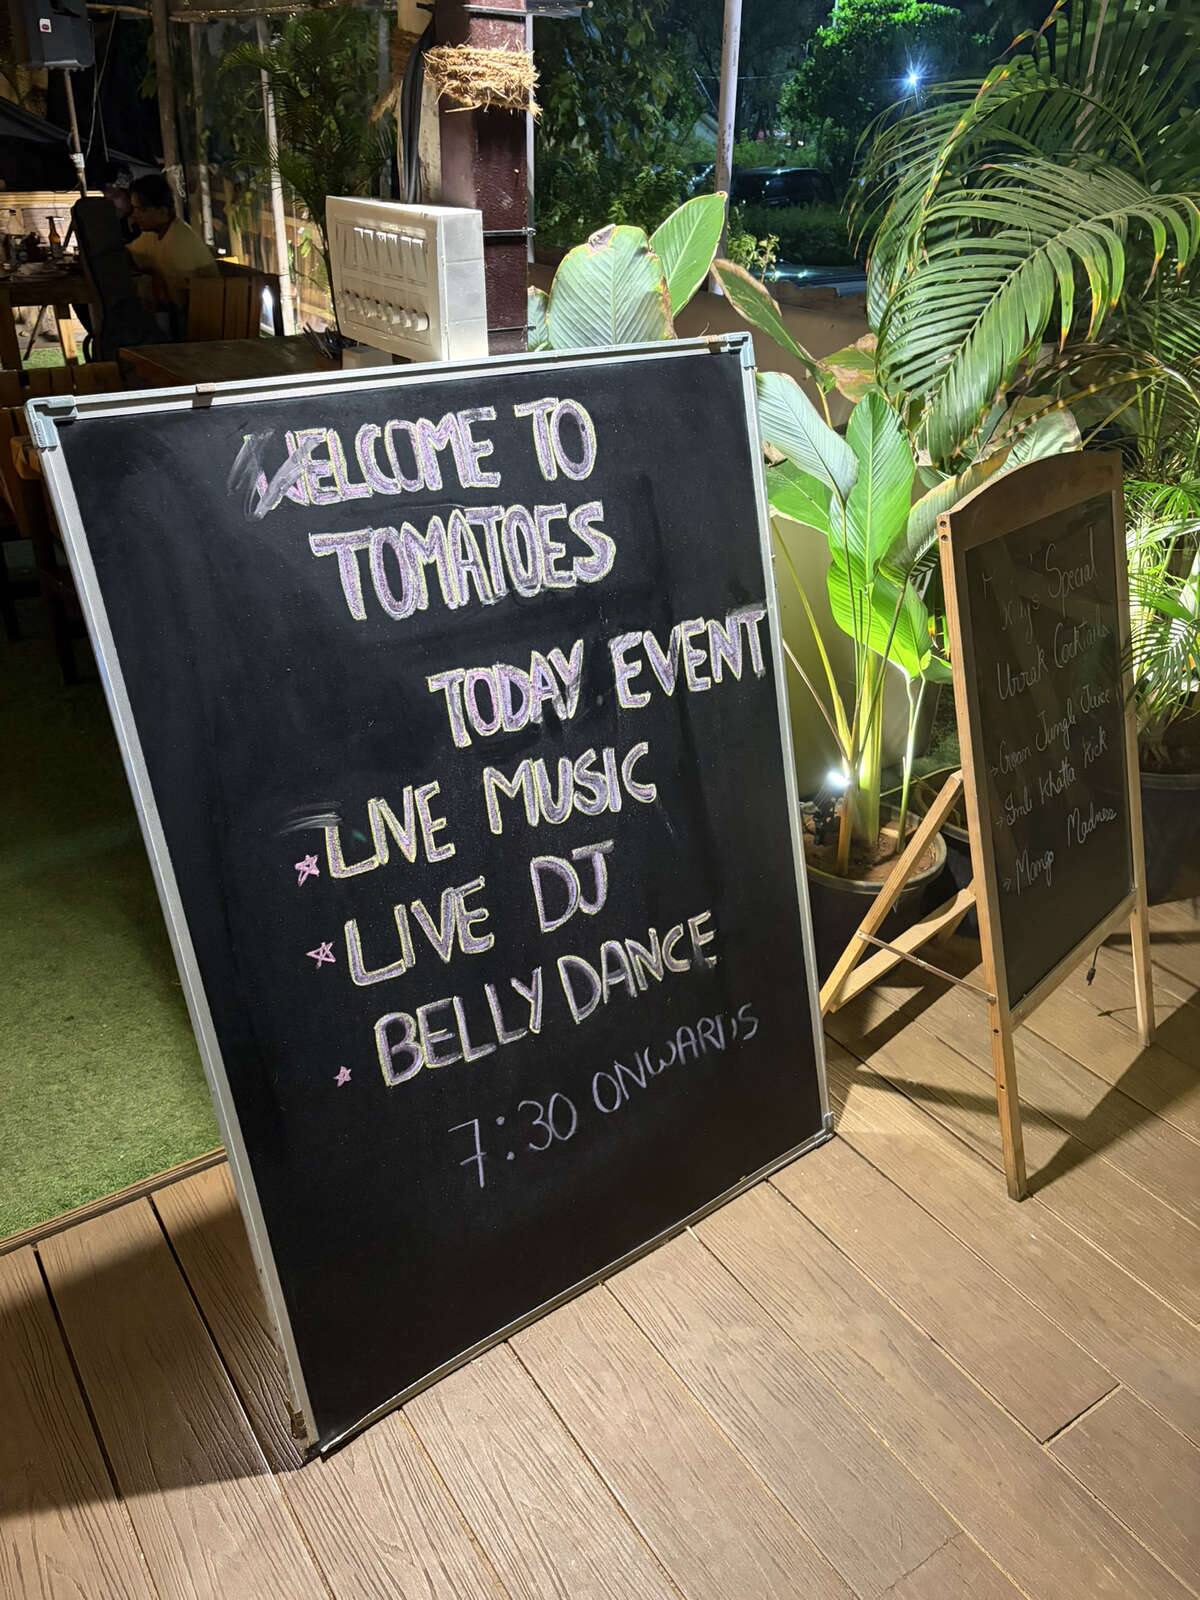 WELCOME TO
TOMATOES
TODAY EVENT
LIVE MUSIC
LIVE DJ
BELLY DANCE
7:30 ONWARDS
Special
Urrak Cocktails
Goan Jungle Juice
Imli Khatta Kick
Mango Madness